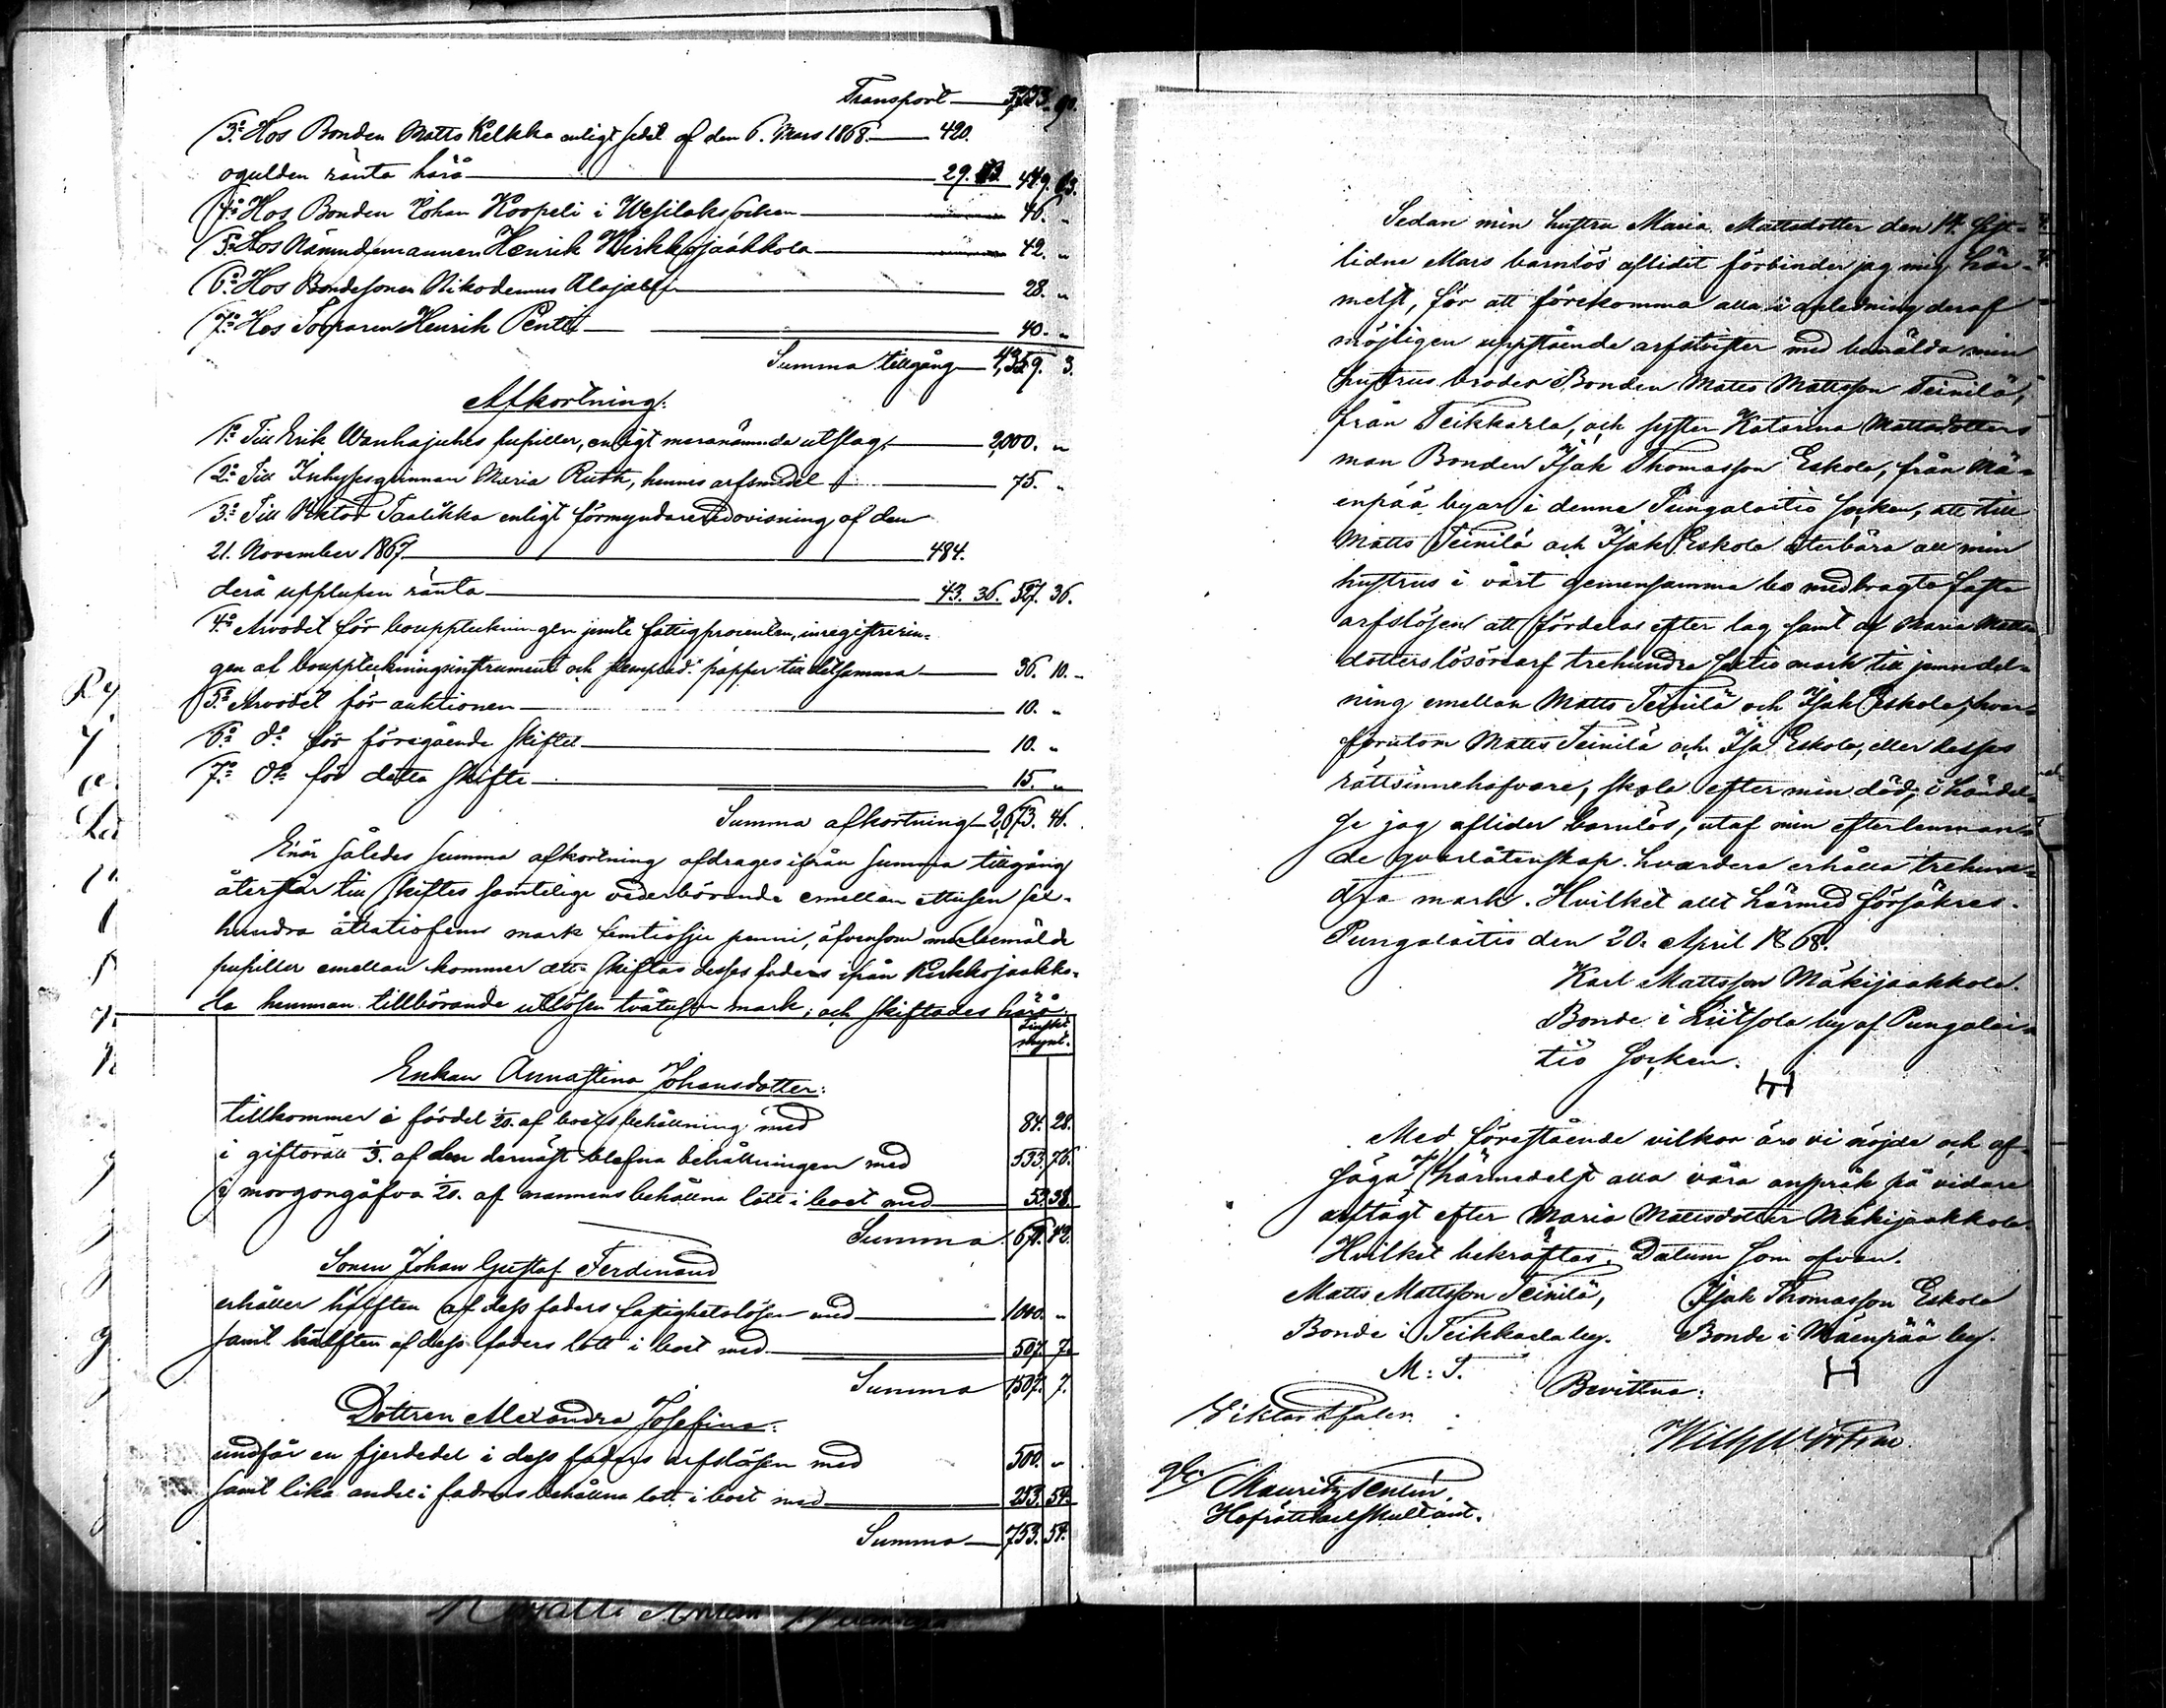 Transport 3,753. 90.
3:o Hos Bonden Matts Kelkka enligt sedel af den 6. Mars 1868. 420.
ogulden ränta härå 29. 13. 449. 13.
4:o Hos Bonden Johan Koopeli i Wesilaks socken 46. "
5:o Hos Nämndemannen Henrik Kirkkojaakkola 42. "
6:o Hos Bondesonen Nikodemus Alajaakko 28. "
7:o Hos Torparen Henrik Pentti 40. "
Summa tillgång 4,359. 3.
Afkortning:
1:o Till Erik Wanhajuhes pupiller, enligt meranämnda utslag 2,000. "
2:o Till Inhysesqvinnan Maria Ruth, hennes arfsmedel 75. "
3:o Till Viktor Taalikka enligt förmyndareredovisning af den
21. November 1867 484.
derå upplupen ränta 43. 36. 527. 36.
4:o Arvodet för bouppteckningen jemte fattigprocenten, inregistrerin-
gen af bouppteckningsinstrument och stemplad: papper till detsamma 36. 10.
5:o Arvodet för auktionen 10. "
6:o d:o för föregående skiftet 10. "
7:o d:o för detta skifte 15. "
Summa afkortning 2,673. 46.
Enär således summa afkortning afdrages ifrån summa tillgång
återstår till skiftes samtelige vederbörande emellan ettusen sex-
hundra åttatiofem mark femtiosju penni, äfvensom merbemälde
pupiller emellan kommer att skiftas desses faders ifrån Kirkkojaakko-
la hemman tillhörande utlösen tvåtusen mark; och skiftades härå
Finskt
mynt.
Enkan Annastina Johansdotter:
tillkommer i fördel 1/20. af boets behållning med 84. 28.
i giftorätt 1/3. af den dernäst blefna behållningen med 533. 76.
i morgongåfva 1/20. af mannens behållna lott i boet med 53. 38.
Summa 671. 42.
Sonen Johan Gustaf Ferdinand
erhåller hälften af dess faders fastighetslösen med 1000. "
samt hälften af dess faders lott i boet med 507. 7.
Summa 1,507. 7.
Dottren Alexandra Josefina:
undfår en fjerdedel i dess faders arfslösen med 500. "
samt lika andel i fadrens behållna lott i boet med 253. 54.
Summa 753. 54.
Sedan min hustru Maria Mattsdotter den 14. sist-
lidne Mars barnlös aflidit förbinder jag mig här-
medelst, för att förekomma alla i anledning deraf
möjligen uppstående arfstvister med bemälda min
hustrus broder Bonden Matts Mattsson Teinilä,
från Teikkarla, och syster Katarina Mattsdotters
man Bonden Isak Thomasson Eskola, från Mä-
enpää byar i denna Pungalaitio socken, att till
Matts Teinilä och Isak Eskola återbära all min
hustrus i vårt gemensamma bo medbragta fasta
arfslösen att fördelas efter lag samt af Maria Matts-
dotters lösörearf trehundra sextio mark till jemn del-
ning emellan Matts Teinilä och Isak Eskola, hvar-
förutom Matts Teinilä och Isa Eskola, eller desses
rättsinnehafvare, skola efter min död, i händel-
se jag aflider barnlös, utaf min efterlemnan-
de qvarlåtenskap hvardera erhålla trehun-
dra mark. Hvilket allt härmed försäkras.
Pungalaitio den 20. April 1868.
Karl Mattsson Mäkijaakkola.
Bonde i Liitsola by af Pungalai-
tio socken.
Med förestående vilkor äro vi nöjde och af-
säga härmedelst alla våra anspråk på vidare
arftägt efter Maria Mattsdotter Mäkijaakkola.
Hvilket bekräftas. Datum som ofvan.
Matts Mattsson Teinilä, Isak Thomasson Eskola
Bonde i Teikkarla by. Bonde i Mäenpää by.
M: T.
Bevittna:
Mauritz
Hofrättsauskultant.